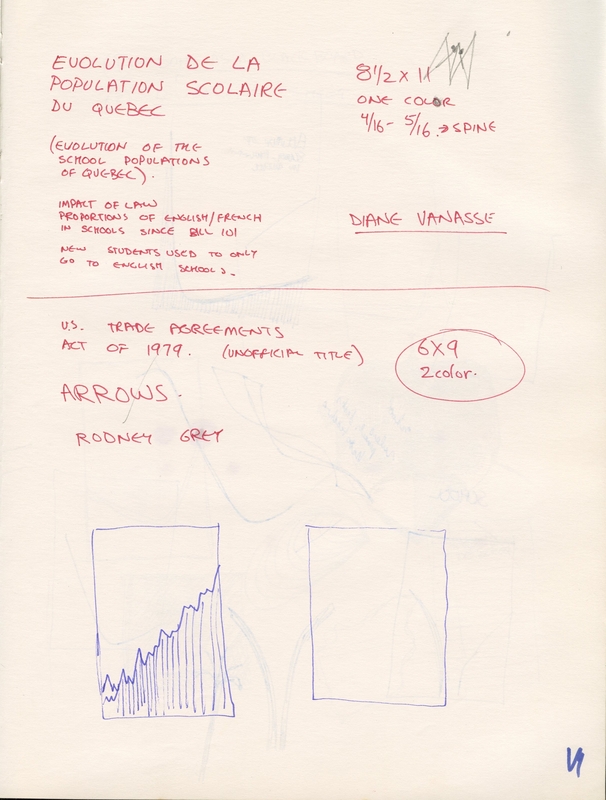 EVOLUTION DE LA
POPULATION SCOLAIRE
DU QUEBEC
8 1/2 x 11
ONE COLOR
4/16 - 5/16 → SPINE
(EVOLUTION OF THE
SCHOOL POPULATIONS
OF QUEBEC).
IMPACT OF LAW
PROPORTIONS OF ENGLISH/FRENCH
IN SCHOOLS SINCE BILL 101
NEW STUDENTS USED TO ONLY
GO TO ENGLISH SCHOOLS.
DIANE VANASSE
U.S. TRADE AGREEMENTS
ACT OF 1979. (UNOFFICIAL TITLE)
6X9
2 color.
ARROWS.
RODNEY GREY